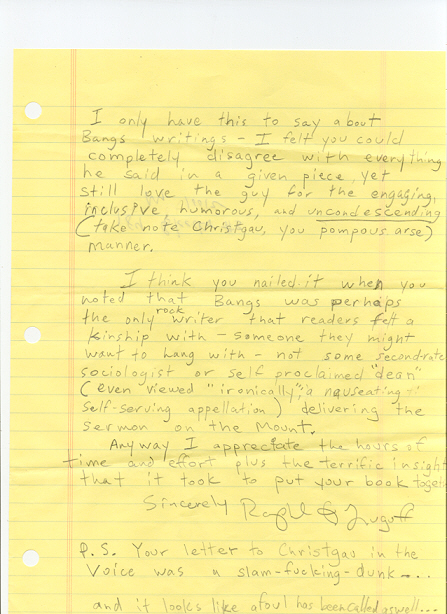 I only have this to say about
Bangs writings - I felt you could
completely disagree with everything
he said in a given piece, yet
still love the guy for the engaging,
inclusive, humorous, and uncondescending
(take note Christgau, you pompous arse)
manner.
I think you nailed it when you
noted that Bangs was perhaps
the only rock writer that readers felt a
kinship with - someone they might
want to hang with - not some secondrate
sociologist or self proclaimed "dean"
(even viewed "ironically", a nauseating
self-serving appellation) delivering the
sermon on the Mount.
Anyway I appreciate the hours of
time and effort plus the terrific insight
that it took to put your book
Sincerely
P.S. Your letter to Christgau in the
Voice was a slam-fucking-dunk - ...
and it looks like a foul has been called aswell...